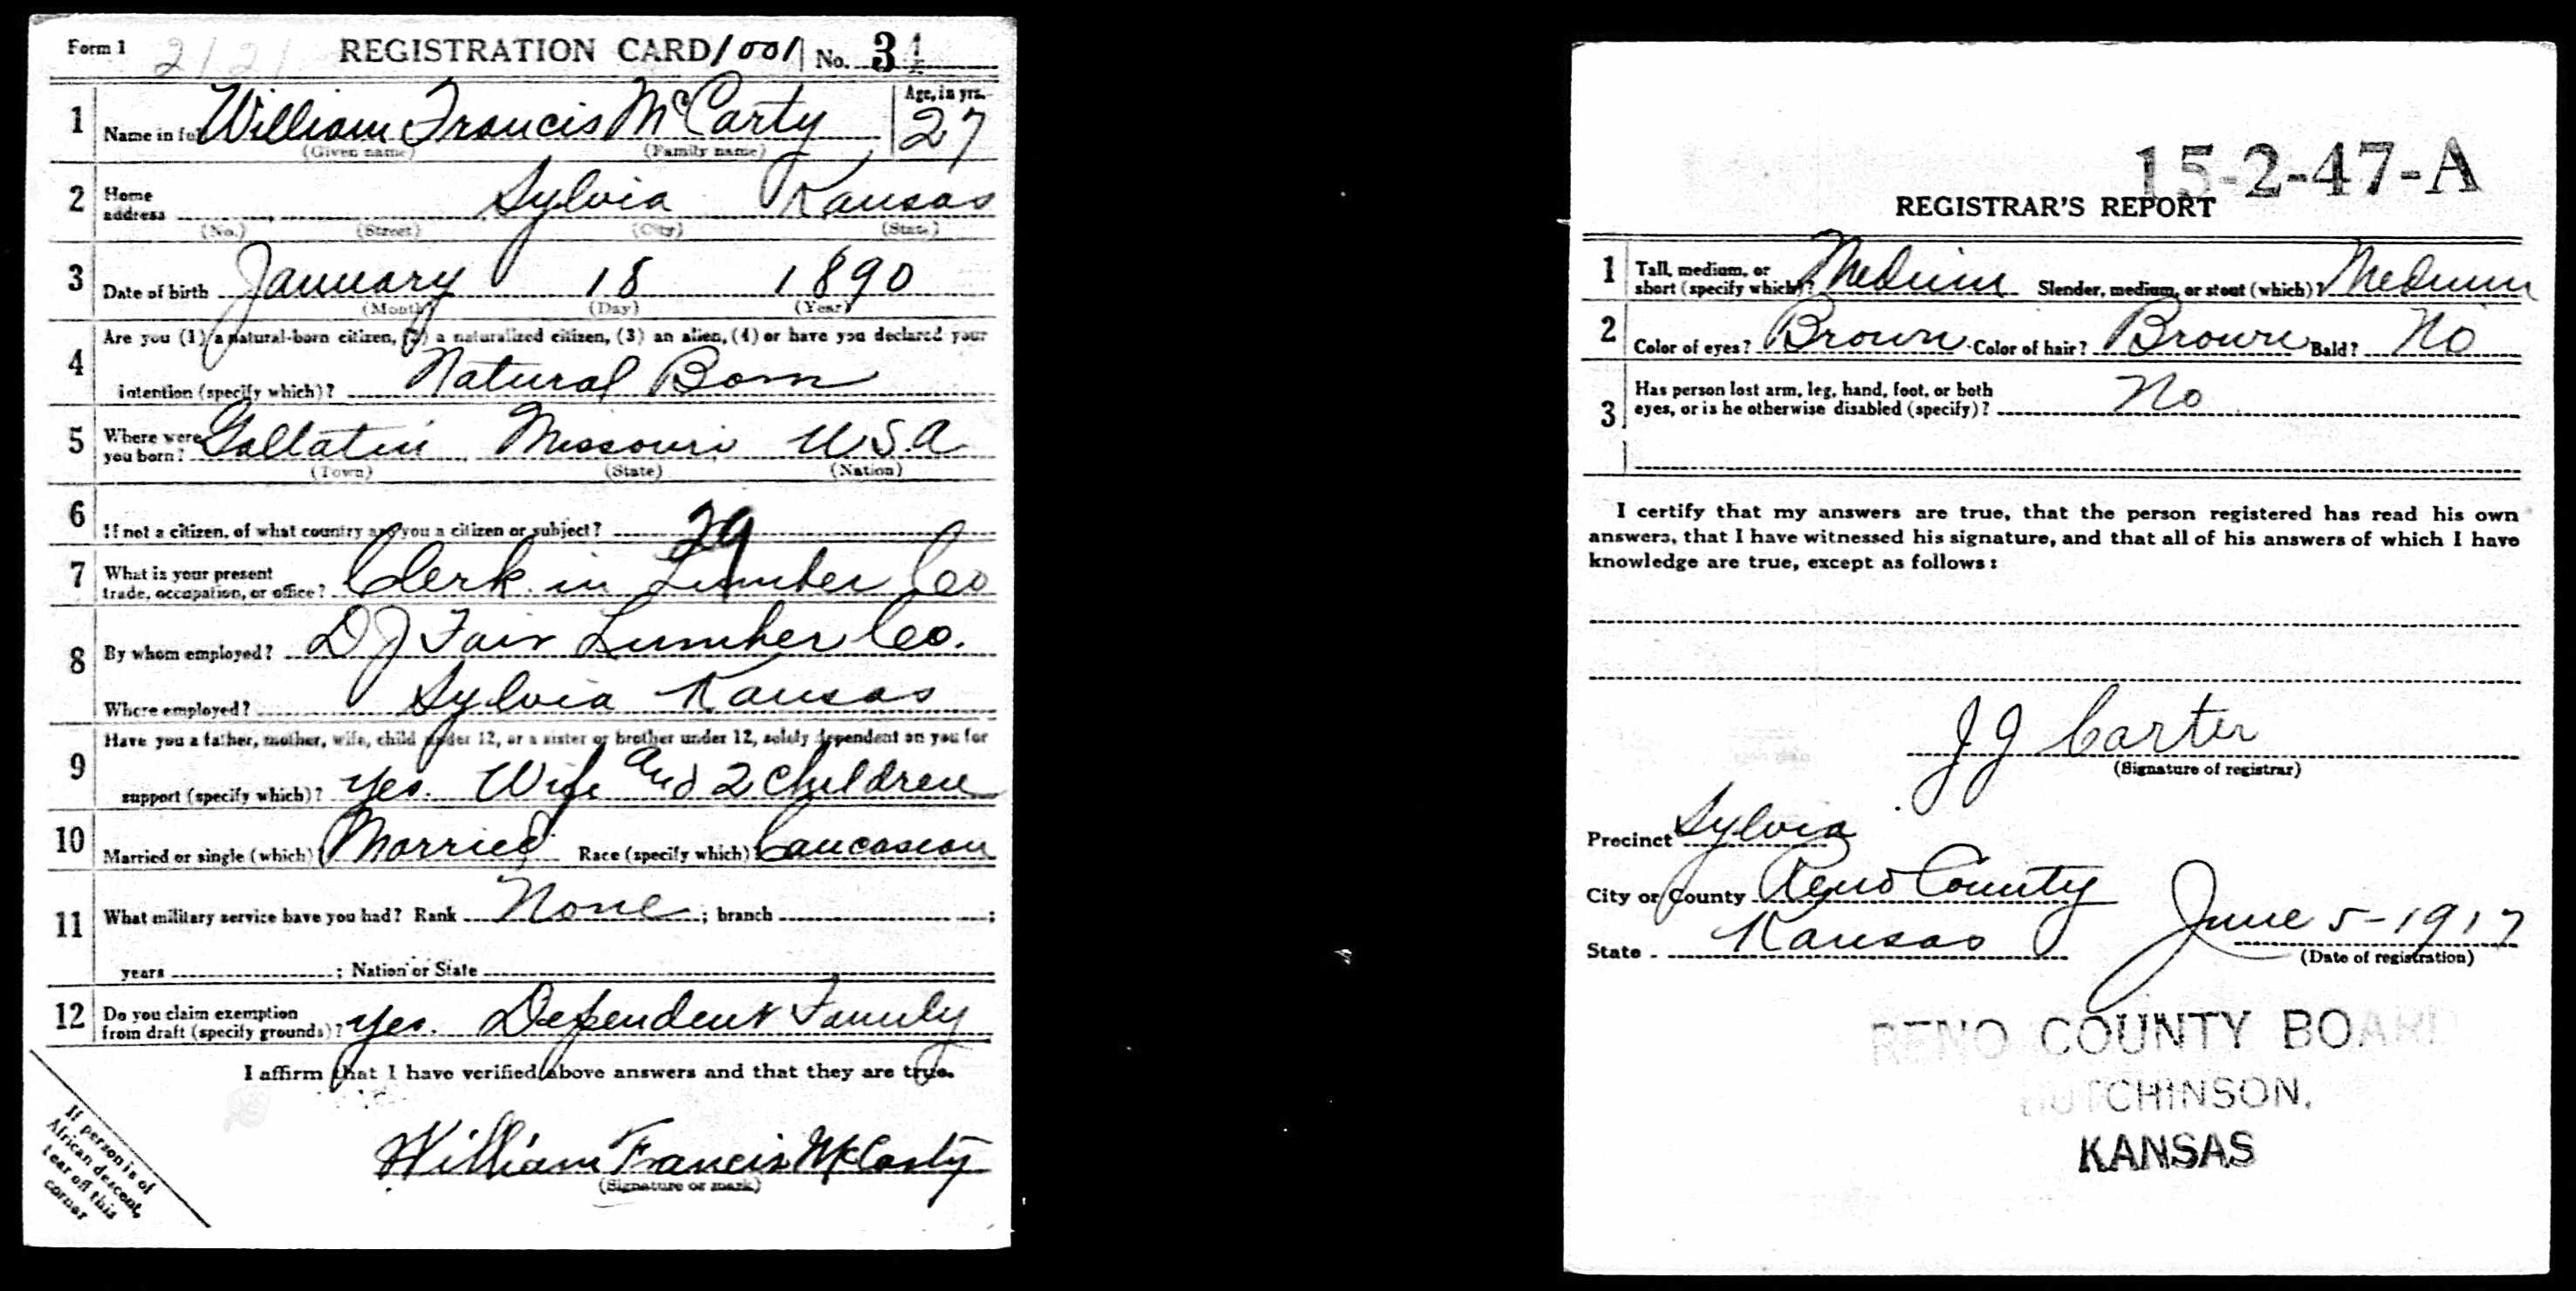 Form 1 2121 REGISTRATION CARD 1001 No. 34
1 Name in full William Francis McCarty Age, in yrs. 27
(Given name) (Family name)
2 Home address Sylvia Kansas
(No.) (Street) (City) (State)
3 Date of birth January 18 1890
(Month) (Day) (Year)
4 Are you (1) a natural-born citizen, (2) a naturalized citizen, (3) an alien, (4) or have you declared your
intention (specify which)? Natural Born
5 Where were you born? Gallatin Missouri U.S.A
(Town) (State) (Nation)
6 If not a citizen, of what country are you a citizen or subject? 29
7 What is your present trade, occupation, or office? Clerk in Lumber Co
8 By whom employed? D J Fair Lumber Co.
Where employed? Sylvia Kansas
9 Have you a father, mother, wife, child under 12, or a sister or brother under 12, solely dependent on you for
support (specify which)? Yes. Wife and 2 children
10 Married or single (which)? Married Race (specify which)? Caucasian
11 What military service have you had? Rank None ; branch ;
years ; Nation or State
12 Do you claim exemption from draft (specify grounds)? Yes. Dependent Family
I affirm that I have verified above answers and that they are true.
William Francis McCarty
(Signature or mark)
If person is of
African descent,
tear off this
corner
15-2-47-A
REGISTRAR'S REPORT
1 Tall, medium, or short (specify which)? Medium Slender, medium, or stout (which)? Medium
2 Color of eyes? Brown Color of hair? Brown Bald? No
3 Has person lost arm, leg, hand, foot, or both
eyes, or is he otherwise disabled (specify)? No
I certify that my answers are true, that the person registered has read his own
answers, that I have witnessed his signature, and that all of his answers of which I have
knowledge are true, except as follows:
J J Carter
(Signature of registrar)
Precinct Sylvia
City or County Reno County
State Kansas June 5-1917
(Date of registration)
RENO COUNTY BOARD
HUTCHINSON,
KANSAS